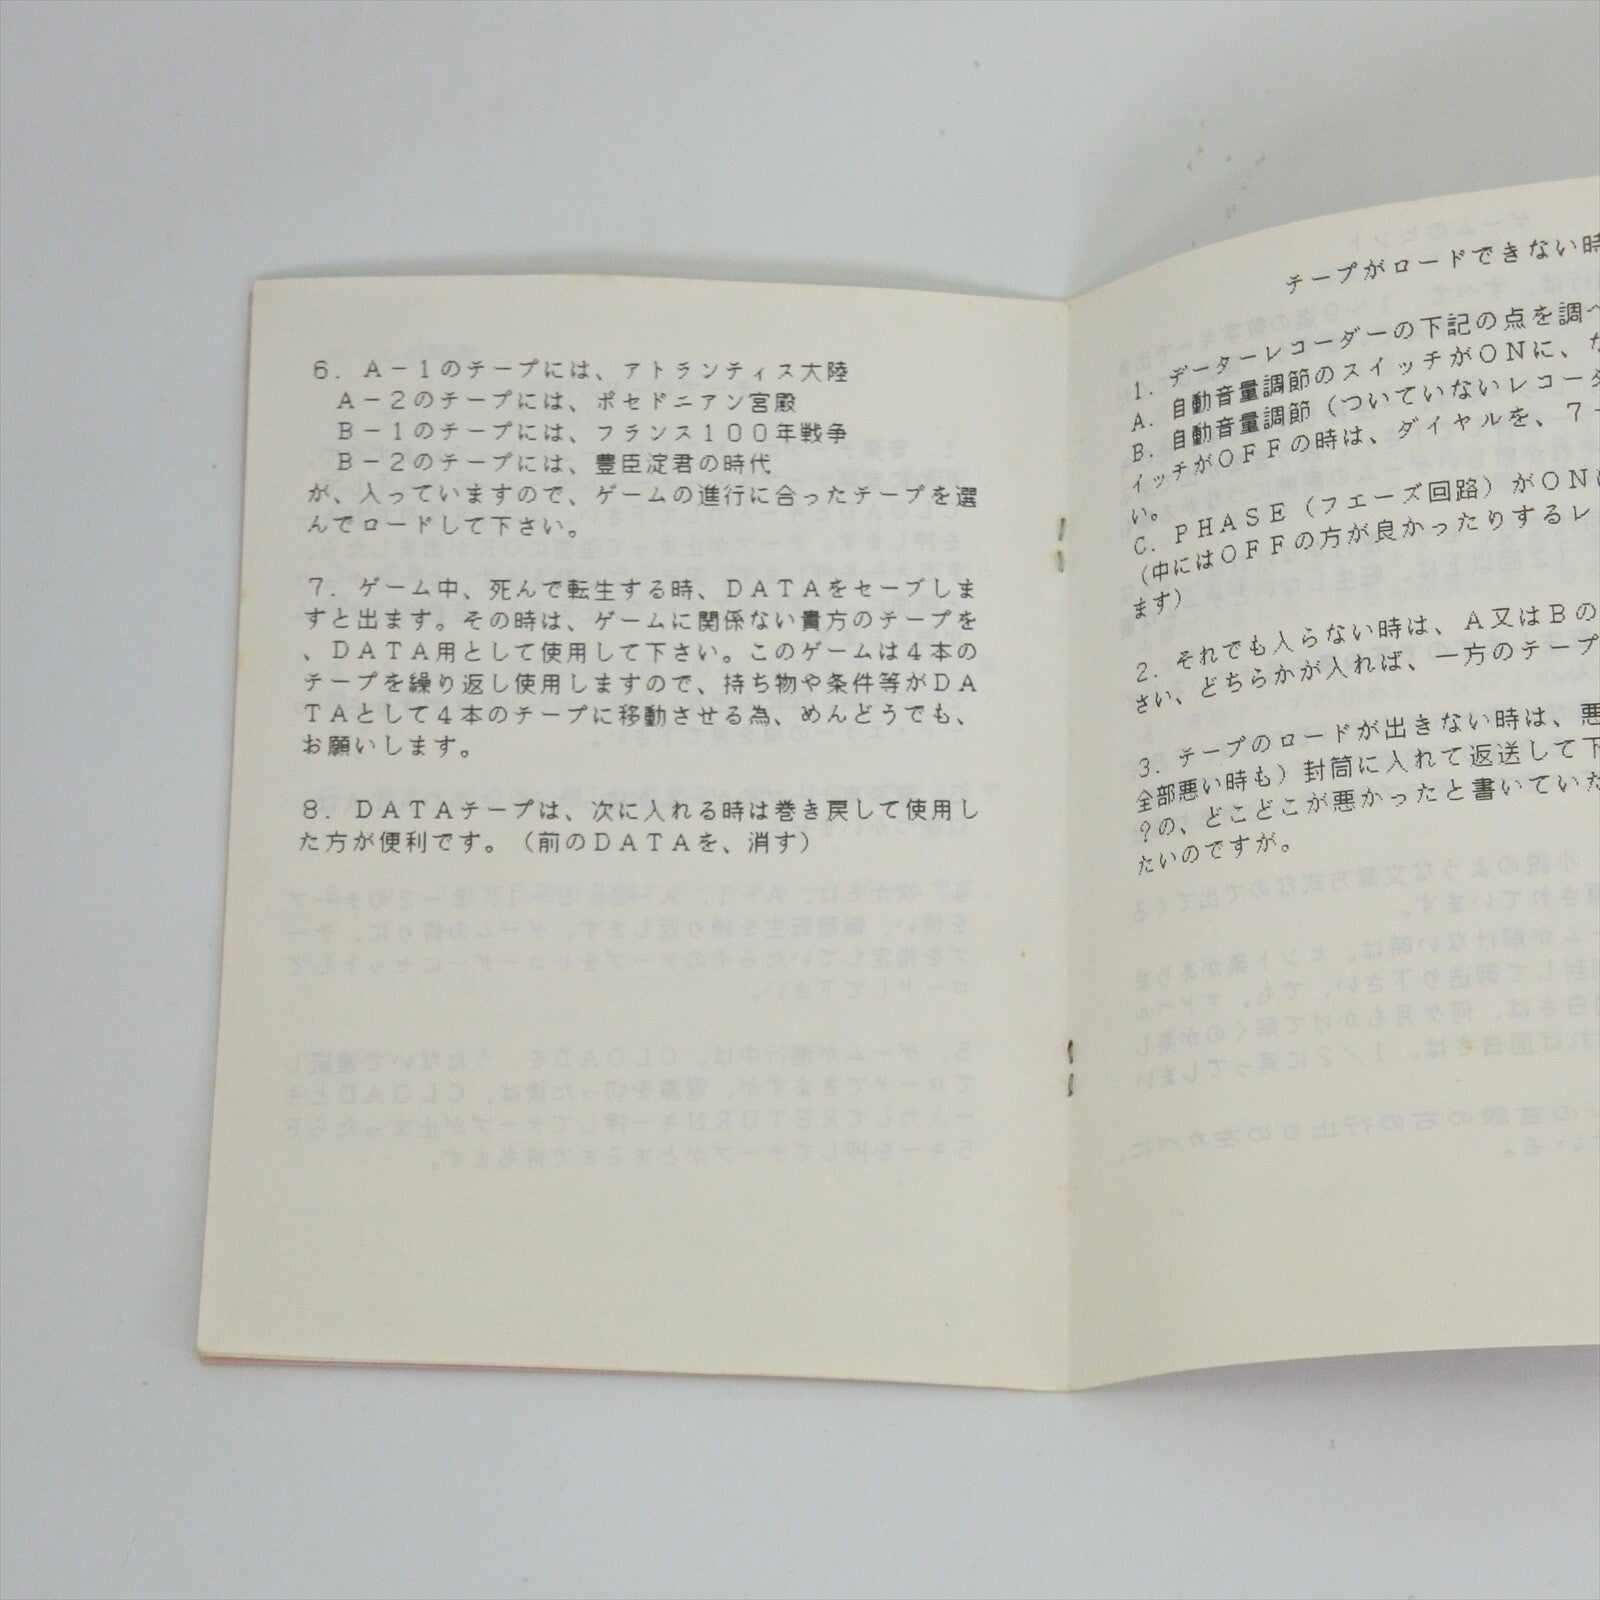 6. A-1のテープには、アトランティス大陸
A-2のテープには、ポセドニアン宮殿
B-1のテープには、フランス100年戦争
B-2のテープには、豊臣淀君の時代
が、入っていますので、ゲームの進行に合ったテープを選
んでロードして下さい。
7. ゲーム中、死んで転生する時、DATAをセーブしま
すと出ます。その時は、ゲームに関係ない貴方のテープを
、DATA用として使用して下さい。このゲームは4本の
テープを繰り返し使用しますので、持ち物や条件等がDA
TAとして4本のテープに移動させる為、めんどうでも、
お願いします。
8. DATAテープは、次に入れる時は巻き戻して使用し
た方が便利です。(前のDATAを、消す)
テープがロードできない時
1. データーレコーダーの下記の点を調べ
A. 自動音量調節のスイッチがONに、な
B. 自動音量調節(ついていないレコーダ
イッチがOFFの時は、ダイヤルを、7-
い。
C. PHASE(フエーズ回路)がONに
(中にはOFFの方が良かったりするレ
ます)
2. それでも入らない時は、A又はBの
さい、どちらかが入れば、一方のテープ
3. テープのロードが出きない時は、悪
全部悪い時も)封筒に入れて返送して下
?の、どこどこが悪かったと書いていた
たいのですが。